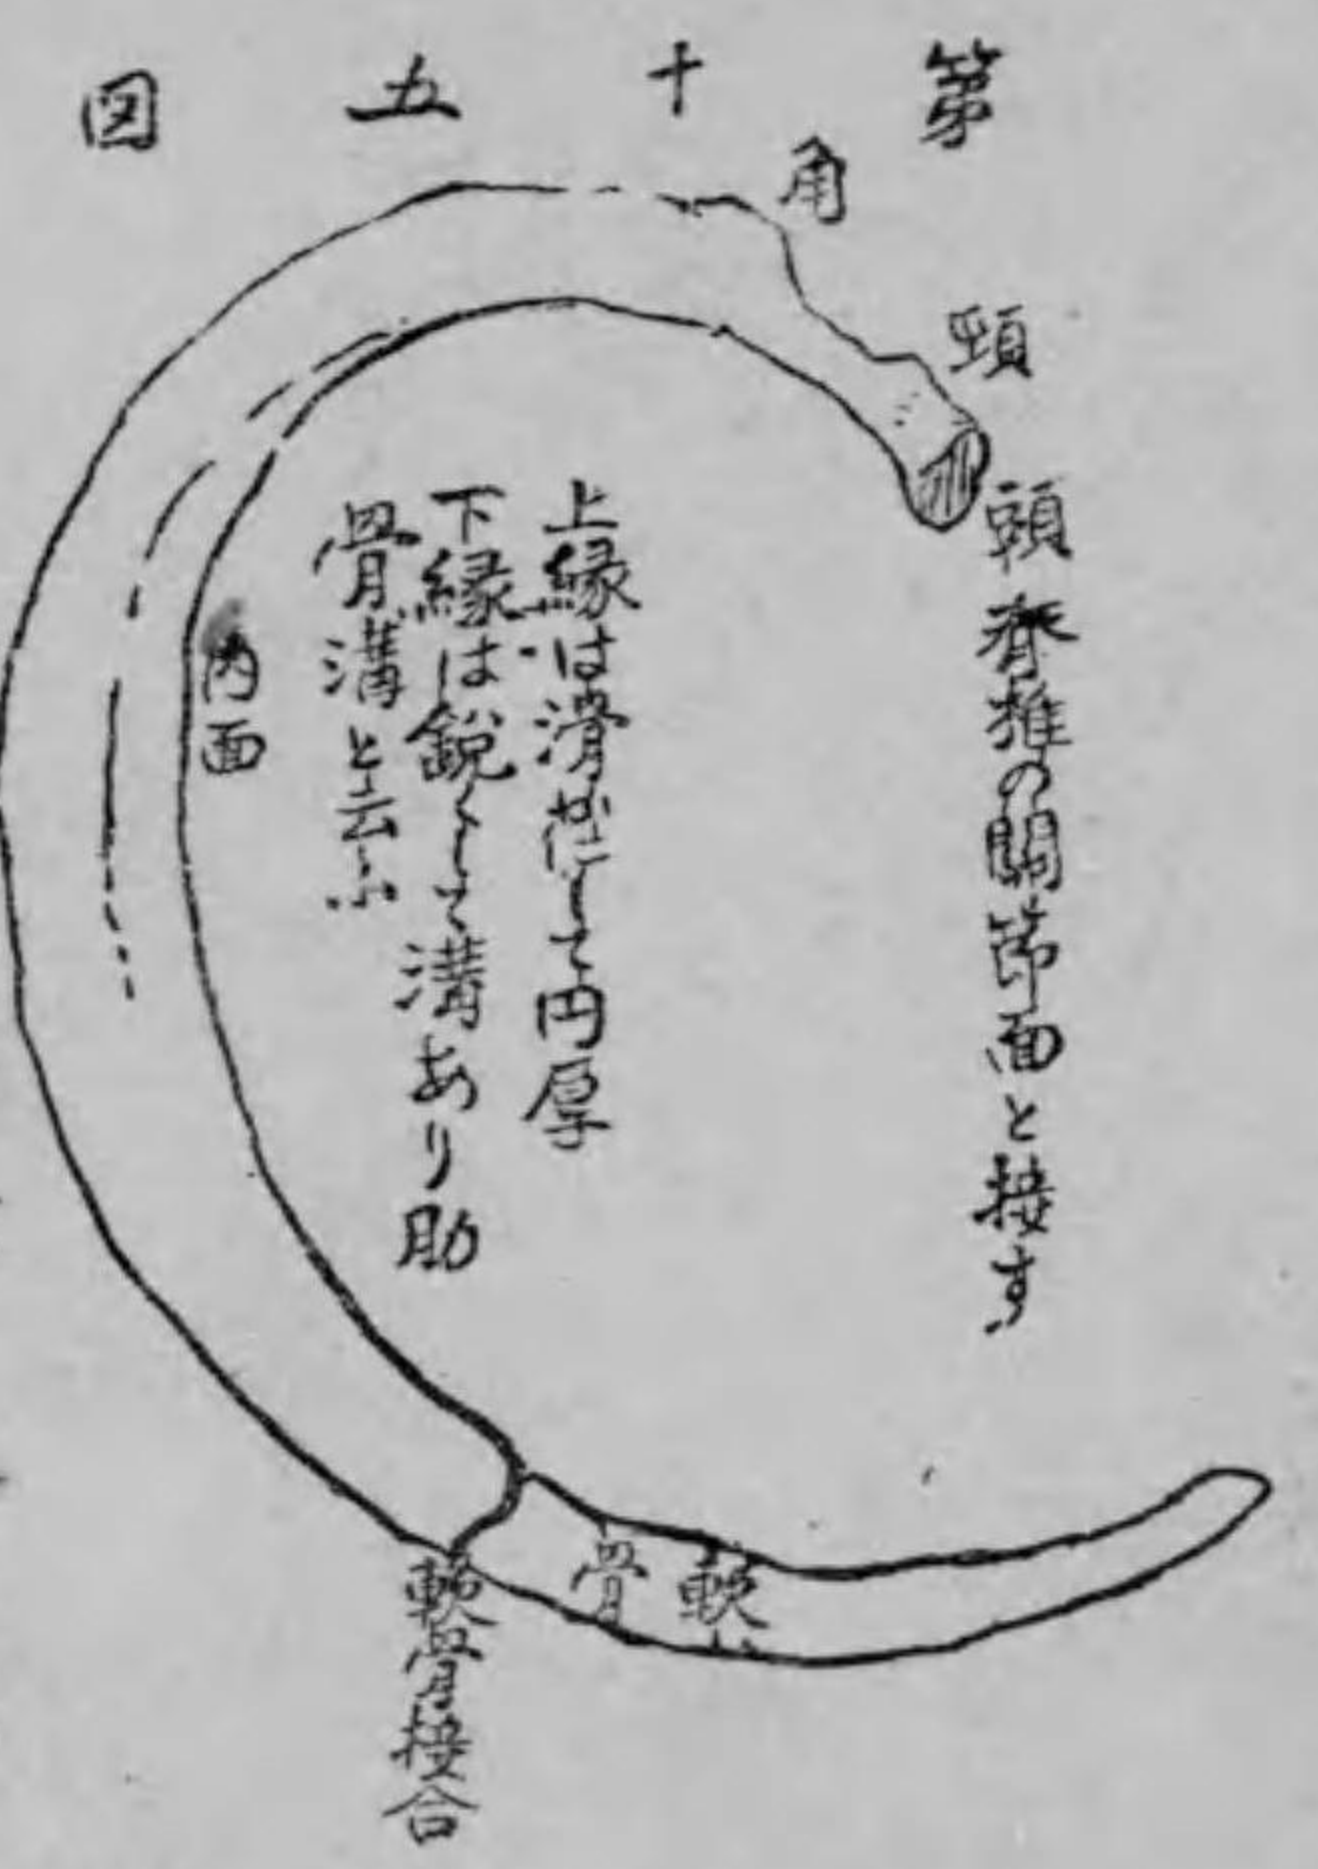 第十五図
角
頚
頭 脊椎の関節面と接す
上縁は滑かにして円厚
下縁は鋭くして溝あり助
骨溝と云ふ
内面
軟骨
軟骨接合